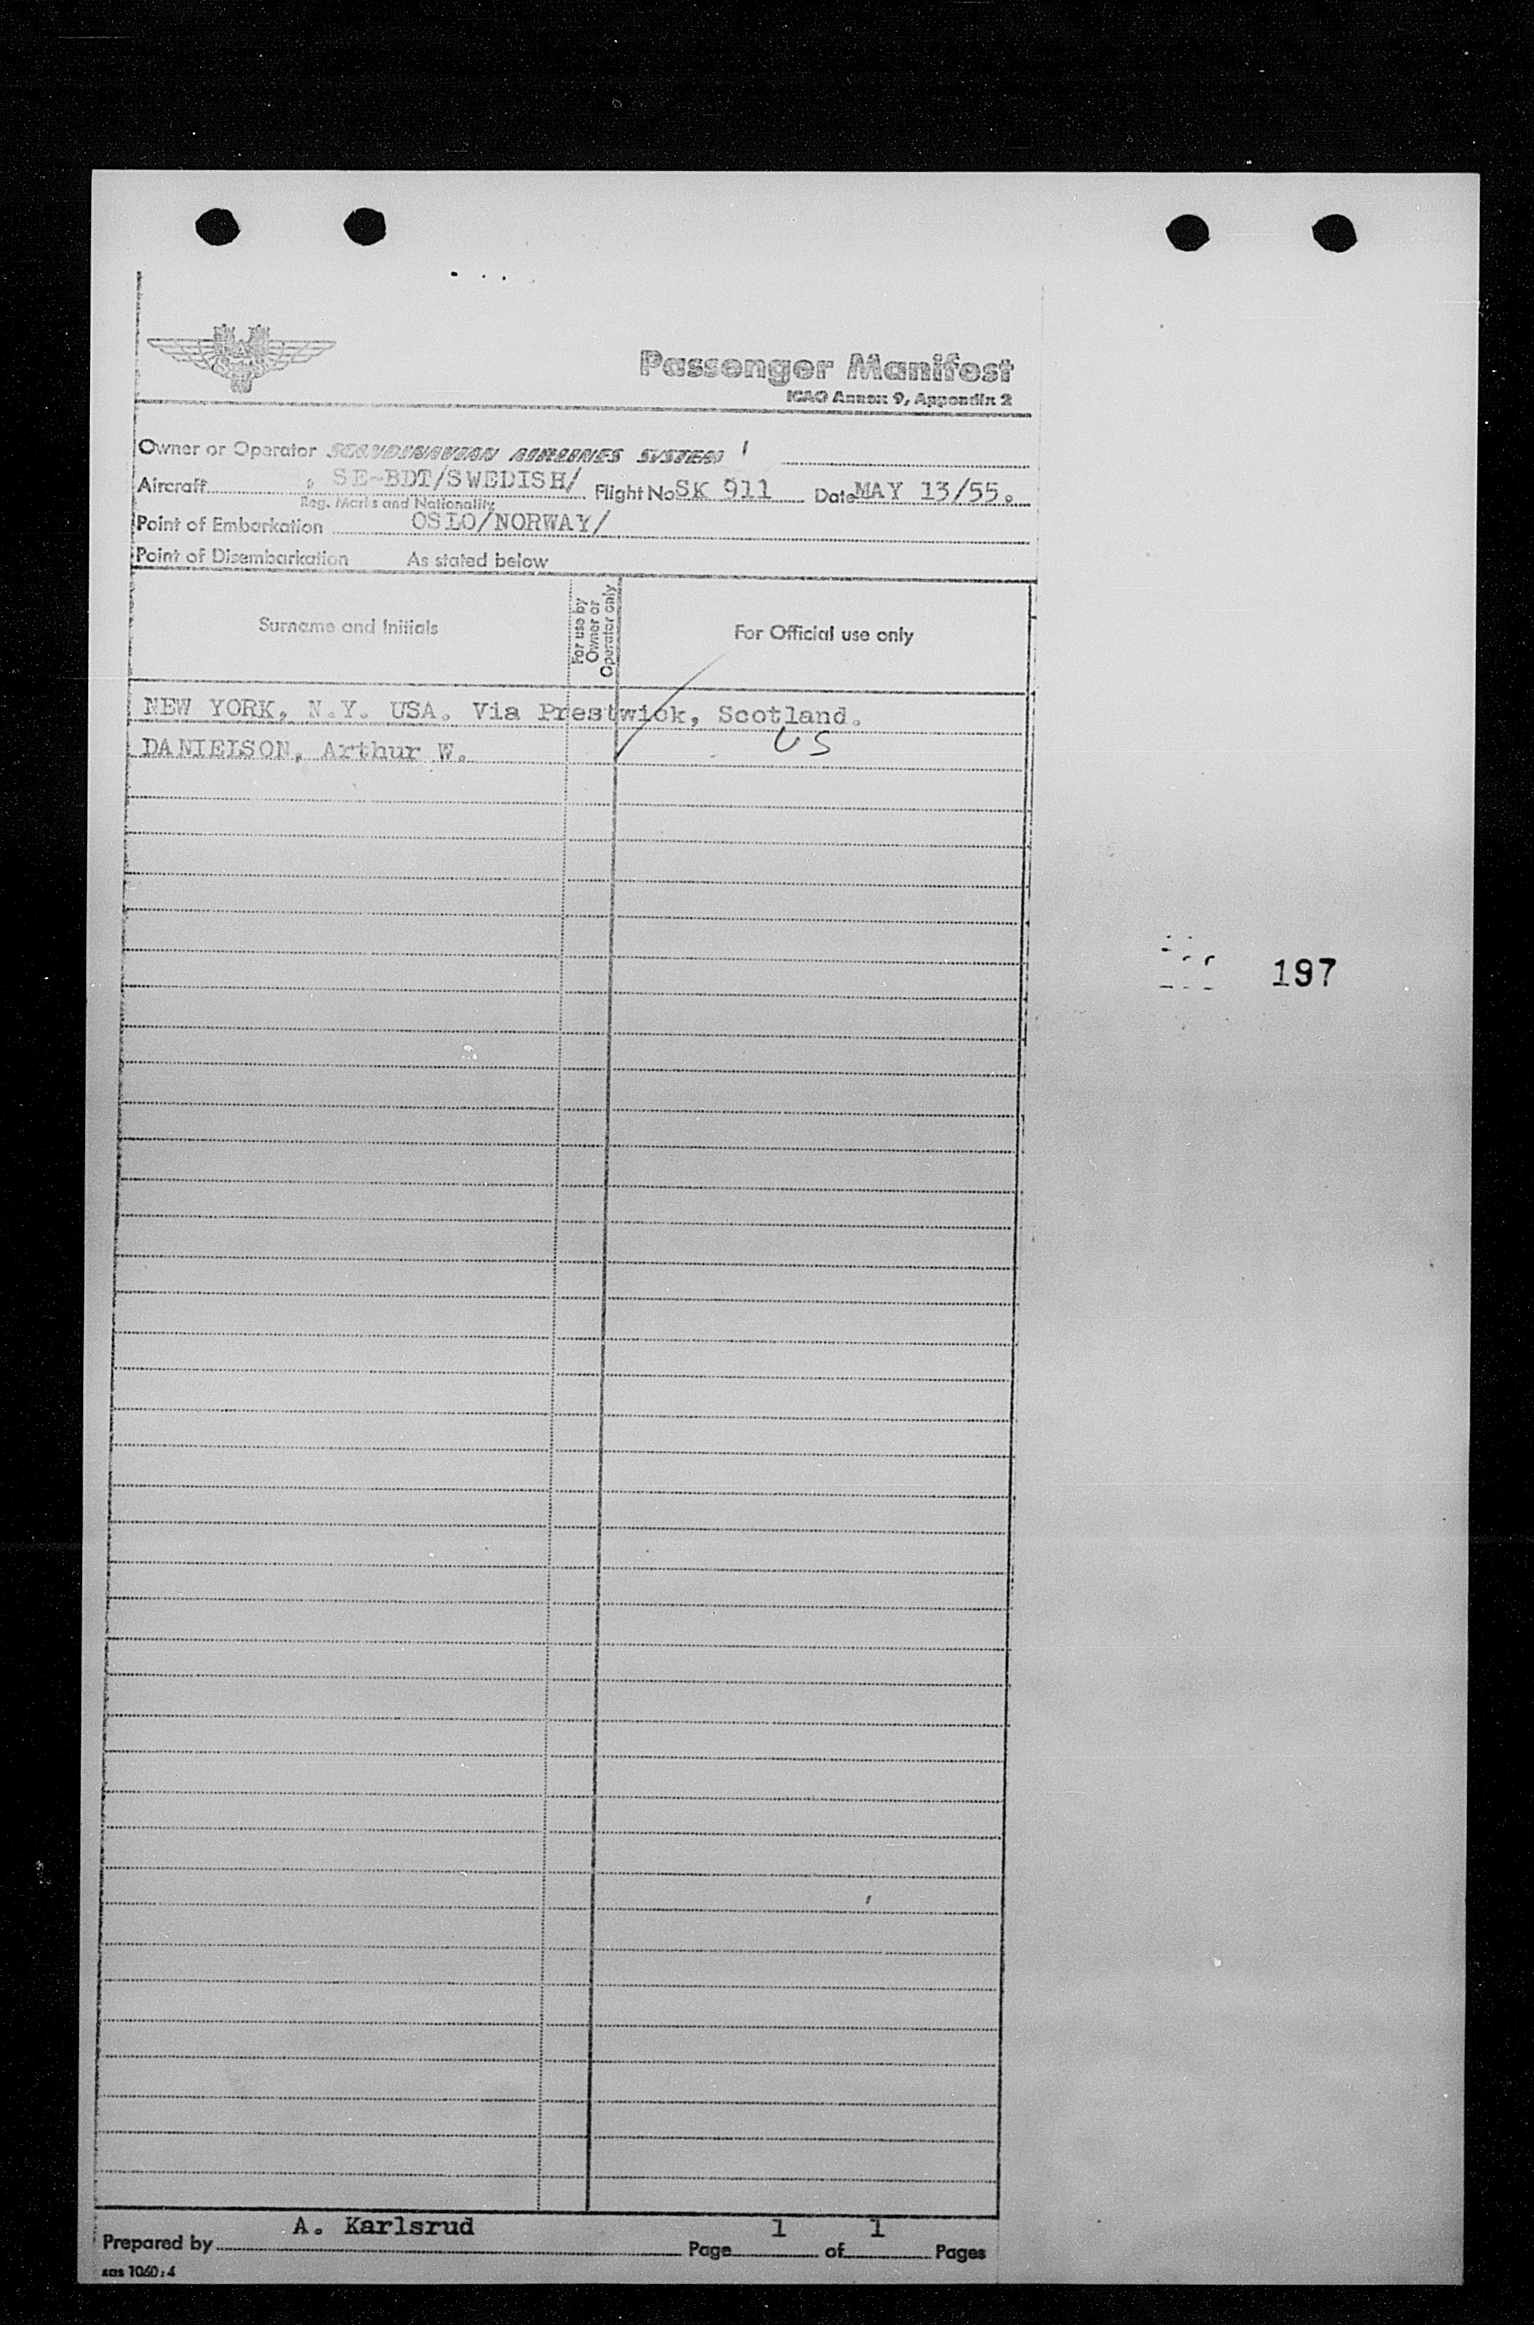 Passenger Manifest
ICAO Annex 9, Appendix 2
Owner or Operator SCANDINAVIAN AIRLINES SYSTEM
Aircraft SE-BDT/SWEDISH/ Flight No SK 911 Date MAY 13/55.
Reg. Marks and Nationality
Point of Embarkation OSLO/NORWAY/
Point of Disembarkation As stated below
Surname and Initials
For use by
Owner or
Operator only
For Official use only
NEW YORK, N.Y. USA. Via Prestwick, Scotland.
DANIELSON, Arthur W. US
197
A. Karlsrud
Prepared by Page 1 of 1 Pages
sas 1060:4